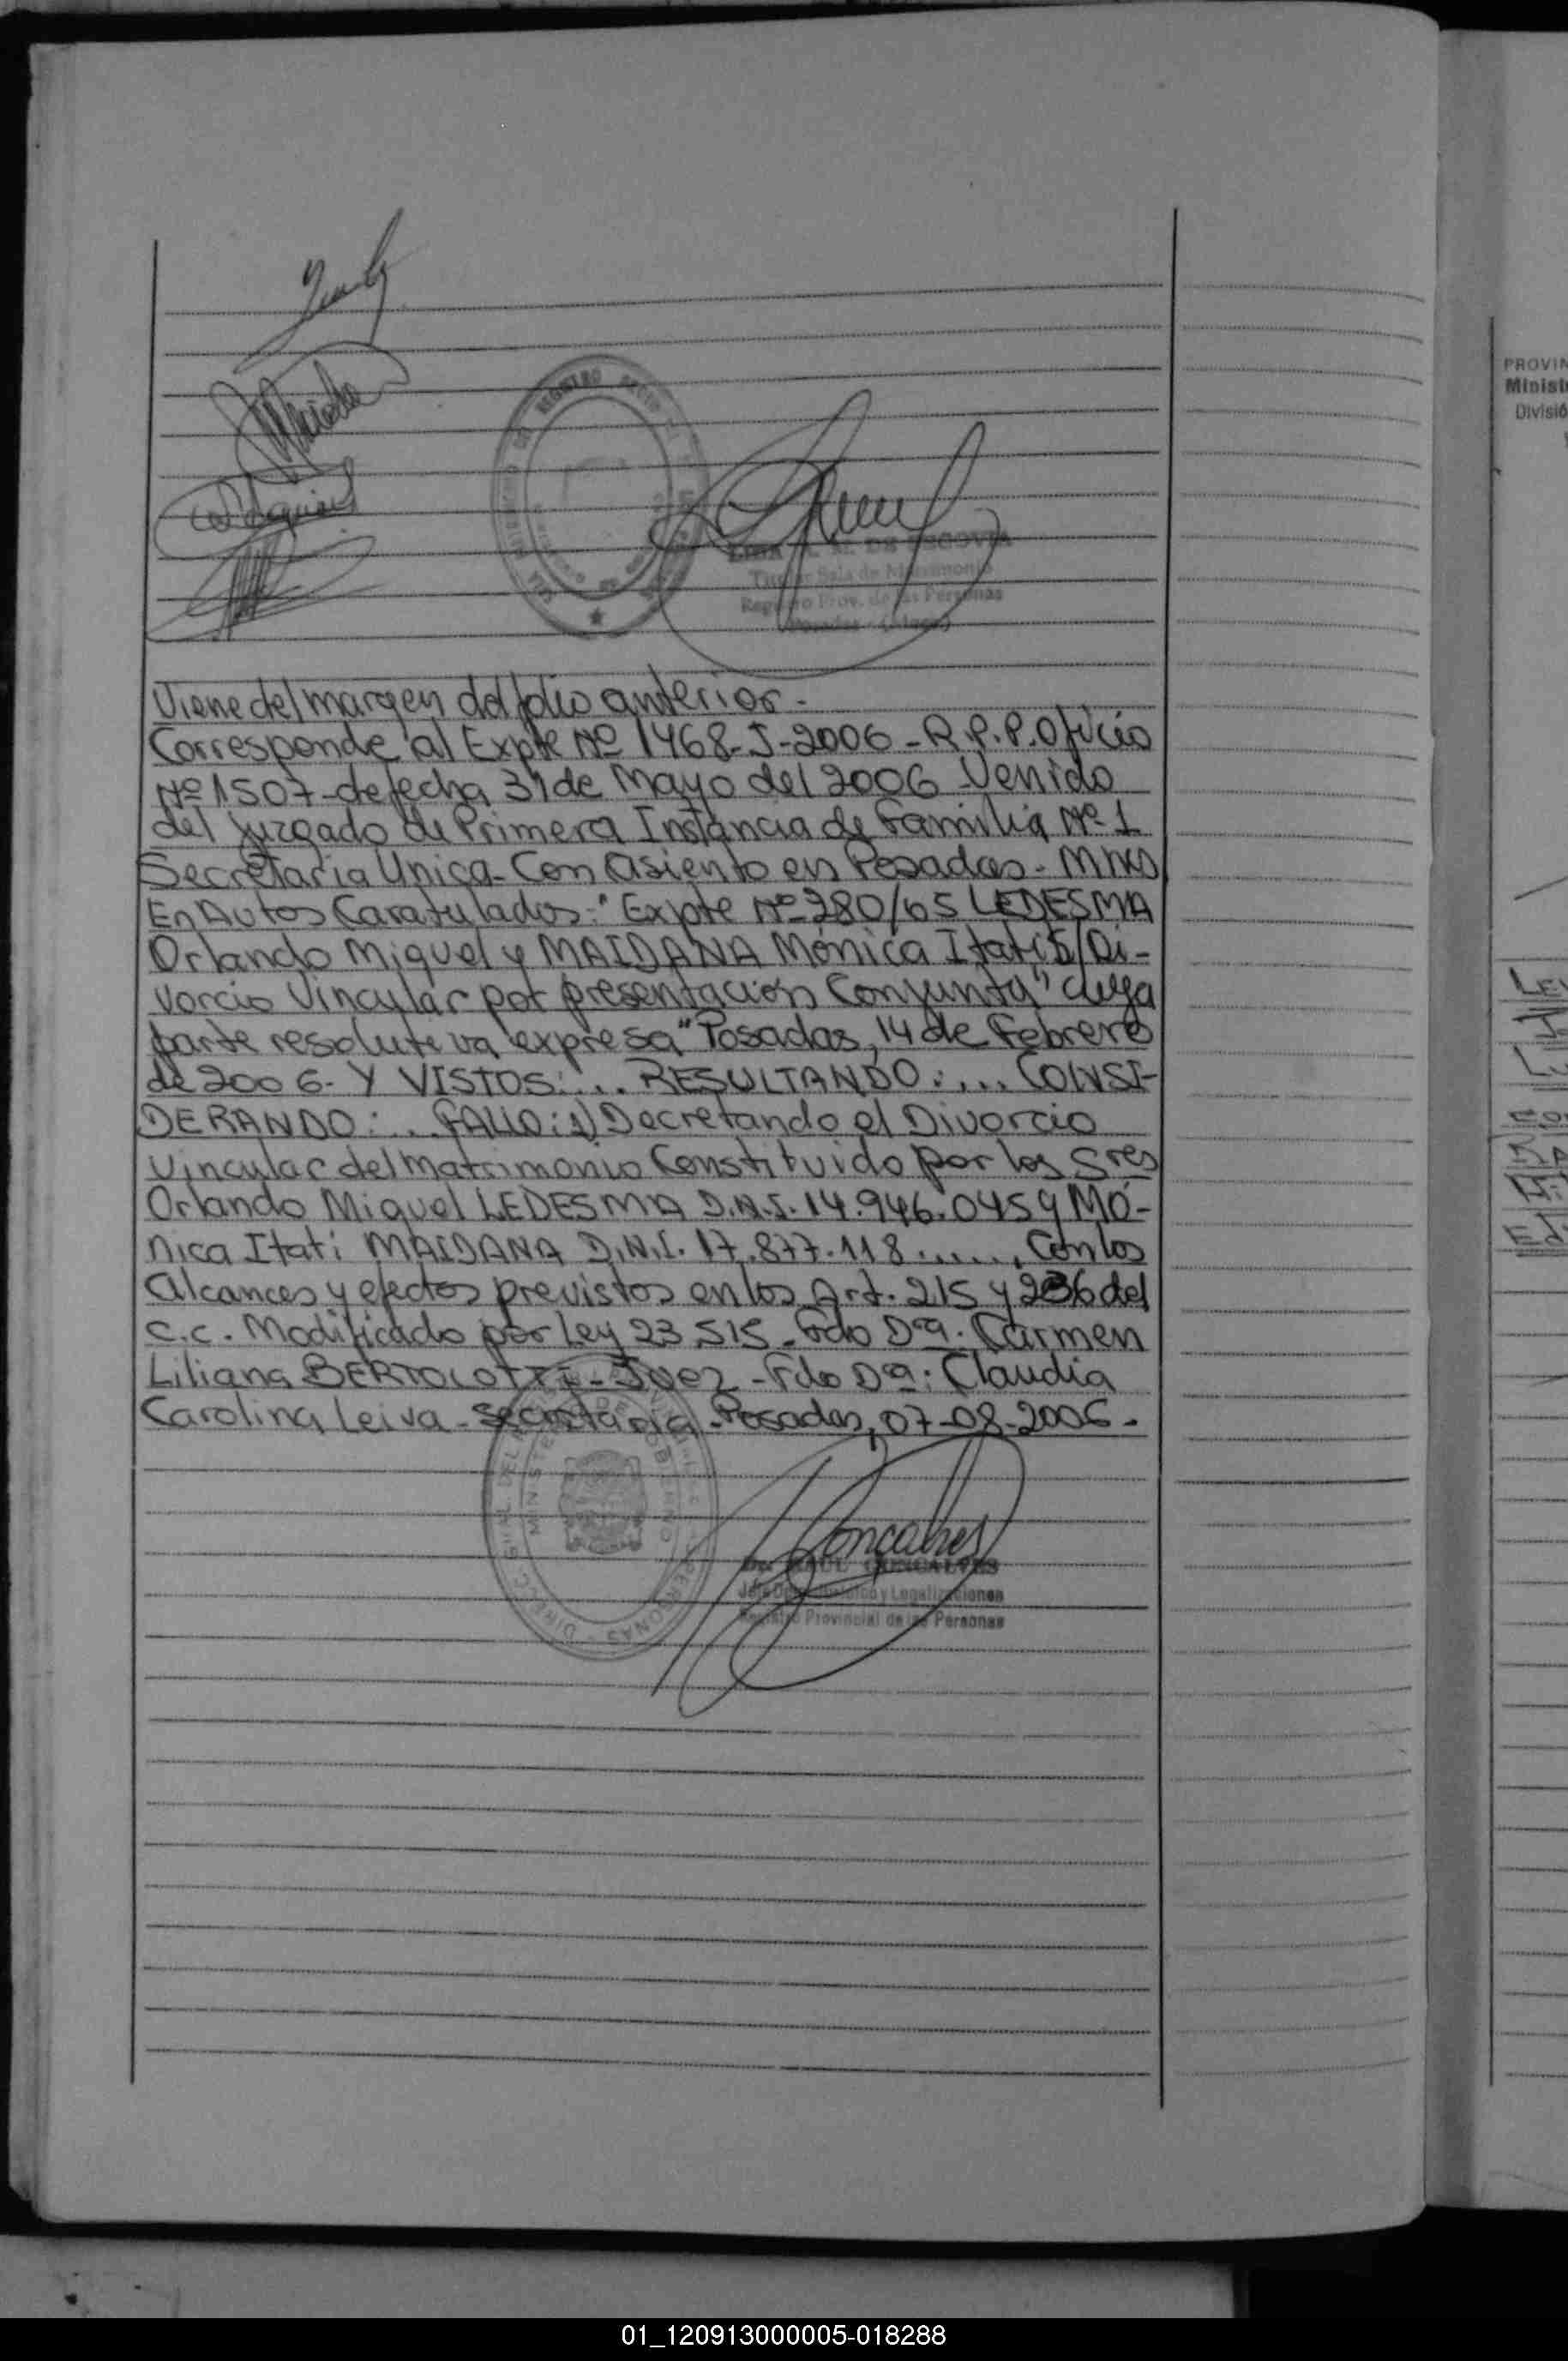 LIDIA A. M. DE SEGOVIA
Titular Sala de Matrimonio
Registro Prov. de las Personas
Posadas - (Mnes)
Viene del margen del folio anterior.-
Corresponde al Expte Nº 1468-J-2006-R.P.P. Oficio
Nº 1507-de fecha 31 de Mayo del 2006-Venido
del Juzgado de Primera Instancia de Familia Nº 1
Secretaria Unica-Con asiento en Posadas-Mnes
En Autos Caratulados: "Expte Nº 280/05 LEDESMA
Orlando Miguel y MAIDANA Mónica Itatí S/Di-
vorcio Vincular por presentacion Conjunta" cuya
parte resolutiva expresa "Posadas, 14 de Febrero
de 2006- Y VISTOS:... RESULTANDO:... CONSI-
DERANDO:... FALLO: 1) Decretando el Divorcio
Vincular del matrimonio Constituido por los Sres
Orlando Miguel LEDESMA D.N.I. 14.946.045 y MÓ-
nica Itatí MAIDANA D.N.I. 17.877.118......, Con los
Alcances y efectos previstos en los Art. 215 y 236 del
C.C. Modificado por Ley 23.515-Fdo Dra. Carmen
Liliana BERTOLOTTI-Juez-Fdo Dra: Claudia
Carolina Leiva-Secretaria-Posadas, 07-08-2006-
MINISTERIO DE GOBIERNO
Goncalves
RAUL GONCALVES
Registro Provincial de las Personas
PROVIN
Minist
Divisió
LE
Ed
01_120913000005-018288